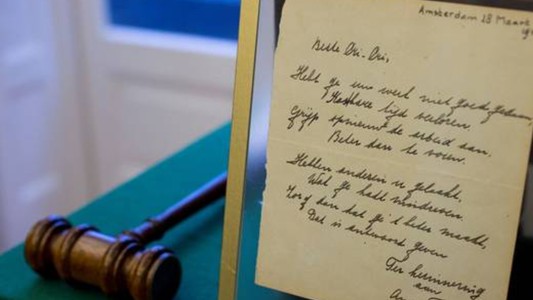 Amsterdam 28 Maart
19
Beste Cri-Cri,
Hebt ge uw werk niet goed gedaan,
Kostbare tijd verloren,
Grijp opnieuw de arbeid aan,
Beter dan te voren.
Hebben anderen u gelaakt,
Wat ge hadt misdreven,
Zorg dan dat ge 't beter maakt,
Dat is antwoord geven
Ter herinnering
aan